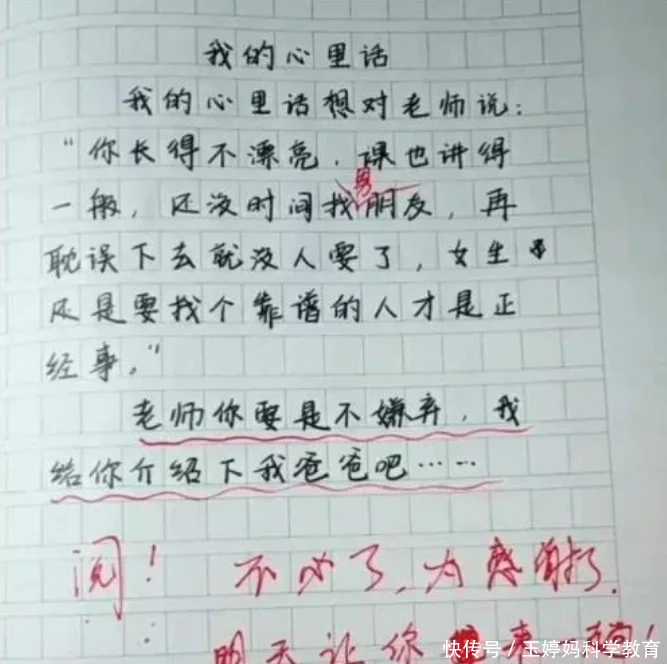 我的心里话
我的心里话想对老师说:
“你长得不漂亮,课也讲得
一般,还没时间找男朋友,再
耽误下去就没人要了,女生
还是要找个靠谱的人才是正
经事。”
老师你要是不嫌弃,我
给你介绍下我爸爸吧……
阅! 不必了,为感谢了.
明天让你
快传号/玉婷妈科学教育